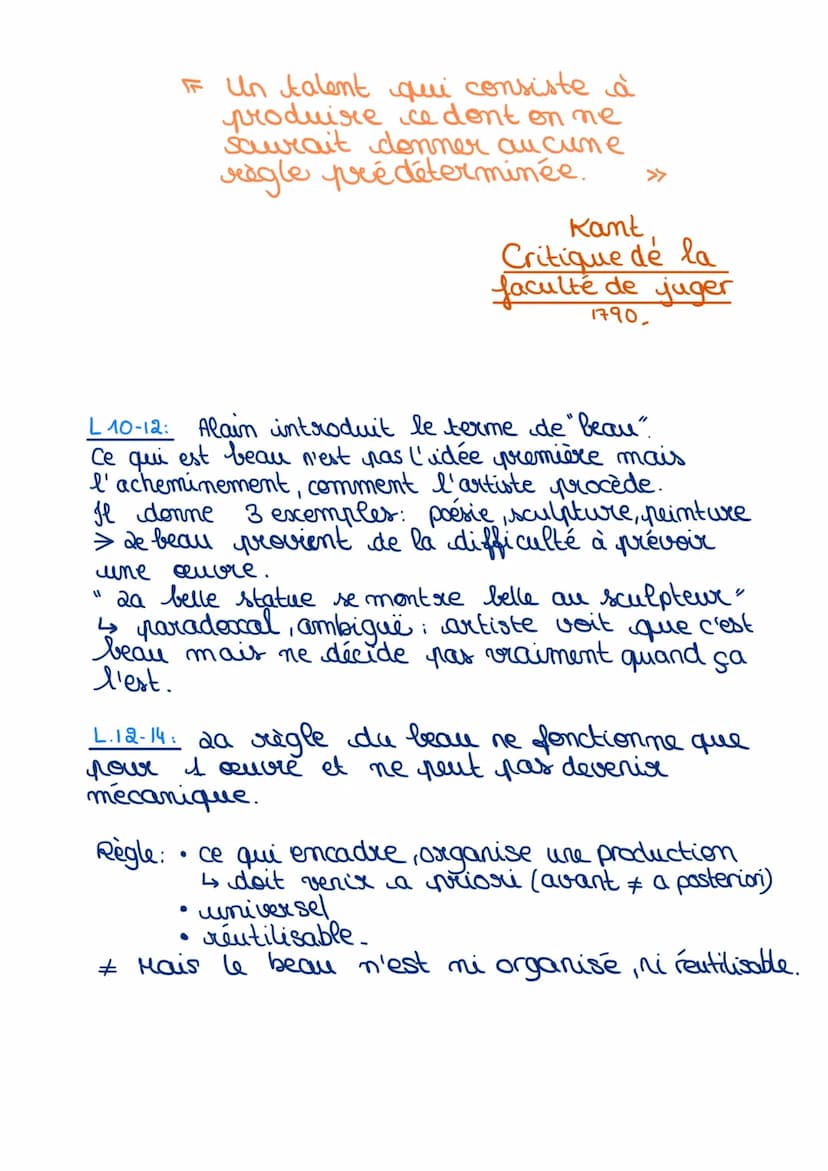 « Un talent qui consiste à
produire ce dont on ne
saurait donner aucune
règle prédéterminée. »
Kant,
Critique de la
faculté de juger
1790.
L 10-12: Alain introduit le terme de "beau".
Ce qui est beau n'est pas l'idée première mais
l'acheminement, comment l'artiste procède.
Il donne 3 exemples: poésie, sculpture, peinture
> Le beau provient de la difficulté à prévoir
une œuvre.
" La belle statue se montre belle au sculpteur "
↳ paradoxal, ambiguë : artiste voit que c'est
beau mais ne décide pas vraiment quand ça
l'est.
L.12-14: La règle du beau ne fonctionne que
pour 1 œuvre et ne peut pas devenir
mécanique.
Règle: • ce qui encadre, organise une production
↳ doit venir a priori (avant ≠ a posteriori)
• universel
• réutilisable.
≠ Mais le beau n'est ni organisé, ni réutilisable.